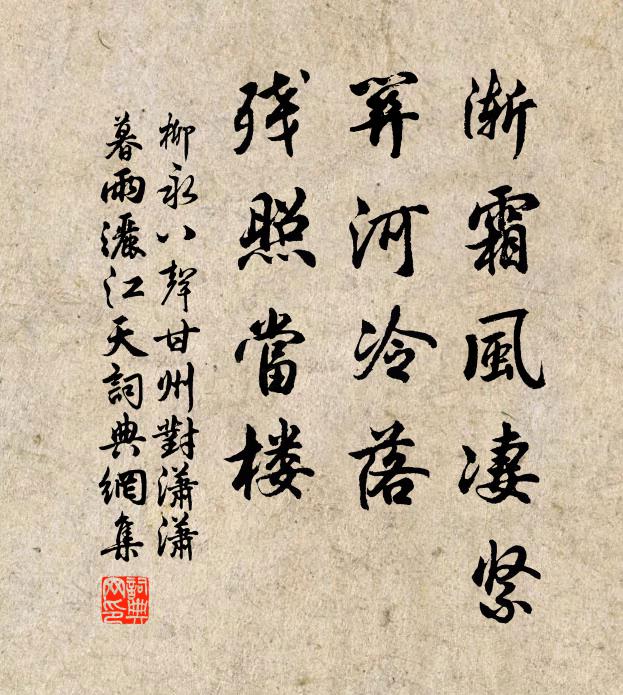 渐霜風凄紧
関河冷落
残照當楼
柳永八聲甘州對瀟瀟
暮雨灑江天詞典網集
詞典
网印